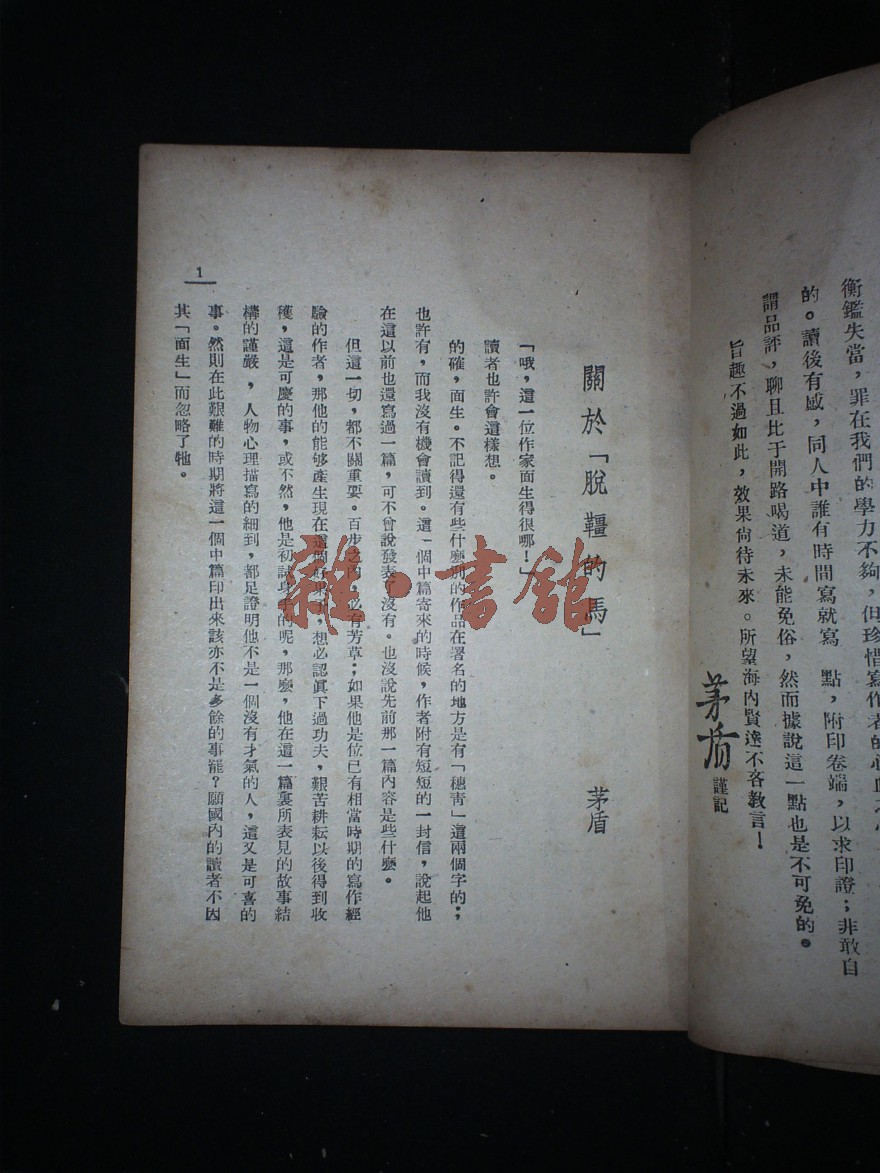 衡鑑失當，罪在我們的學力不夠，但珍惜寫作者的心血
的。讀後有感，同人中誰有時間寫就寫　點，附印卷端，以求印證；非敢自
謂品評，聊且比于開路喝道，未能免俗，然而據說這一點也是不可免的。
旨趣不過如此，效果尙待未來。所望海內賢達不吝教言！
茅盾 謹記
關於「脫韁的馬」
茅盾
「哦，這一位作家面生得很哪！」
讀者也許會這樣想。
的確，面生。不記得還有些什麼別的作品在署名的地方是有「穗靑」這兩個字的；
也許有，而我沒有機會讀到。這一個中篇寄來的時候，作者附有短短的一封信，說起他
在這以前也還寫過一篇，可不會說發表了沒有。也沒說先前那一篇內容是些什麼。
但這一切，都不關重要。百步之內，必有芳草；如果他是位已有相當時期的寫作經
驗的作者，那他的能够產生現在這個好果子，想必認眞下過功夫，艱苦耕耘以後得到收
穫，這是可慶的事，或不然，他是初試身手的呢，那麼，他在這一篇裏所表見的故事結
構的謹嚴，人物心理描寫的細到，都足證明他不是一個沒有才氣的人，這又是可喜的
事。然則在此艱難的時期將這一個中篇印出來該亦不是多餘的事罷？願國內的讀者不因
其「面生」而忽略了牠。
1
雜·書館